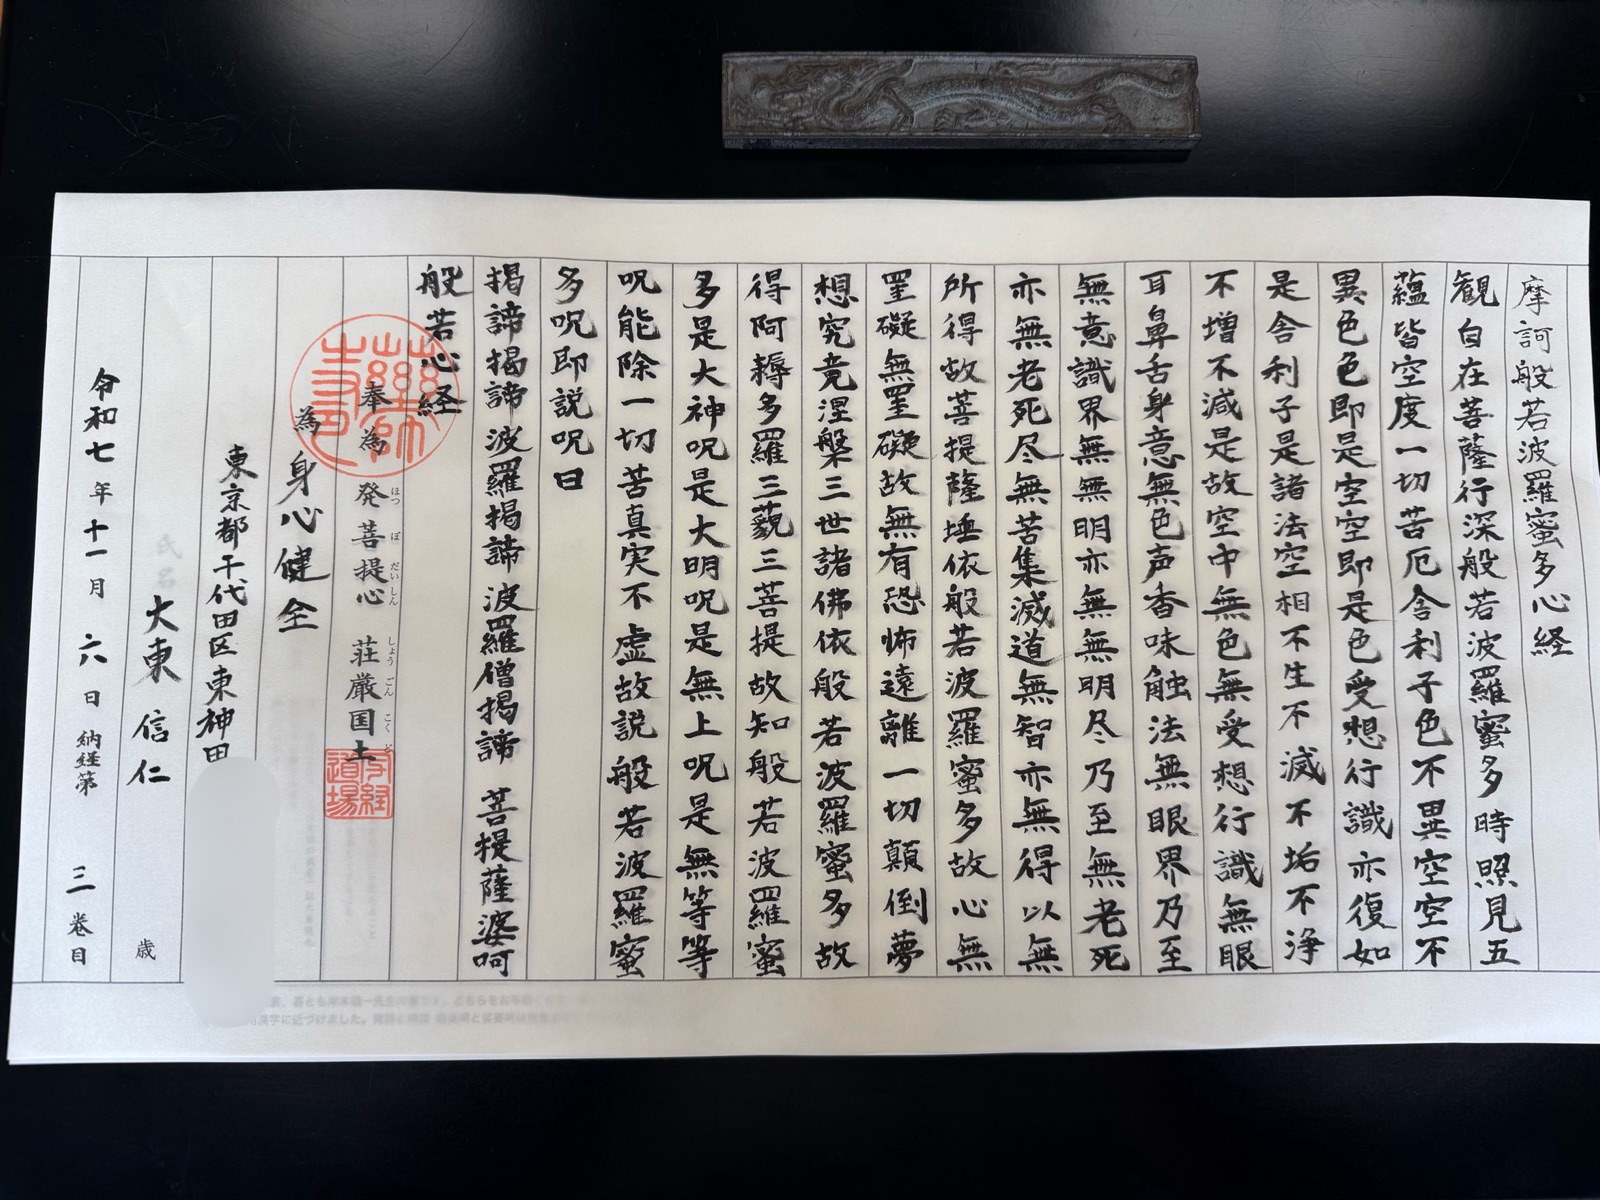 摩訶般若波羅蜜多心経
観自在菩薩行深般若波羅蜜多時照見五
蘊皆空度一切苦厄舎利子色不異空空不
異色色即是空空即是色受想行識亦復如
是舎利子是諸法空相不生不滅不垢不浄
不増不減是故空中無色無受想行識無眼
耳鼻舌身意無色声香味触法無眼界乃至
無意識界無無明亦無無明尽乃至無老死
亦無老死尽無苦集滅道無智亦無得以無
所得故菩提薩埵依般若波羅蜜多故心無
罣礙無罣礙故無有恐怖遠離一切顛倒夢
想究竟涅槃三世諸佛依般若波羅蜜多故
得阿耨多羅三藐三菩提故知般若波羅蜜
多是大神呪是大明呪是無上呪是無等等
呪能除一切苦真実不虚故説般若波羅蜜
多呪即説呪曰
掲諦掲諦波羅掲諦波羅僧掲諦 菩提薩婆呵
般若心経
奉為 発菩提心 荘厳国土
ほつ ぼ だいしん しょう ごん こく ど
薬師寺印
写経道場
為 身心健全
東京都千代田区東神田
大東信仁 歳
令和七年十一月六日 納経第 三巻目